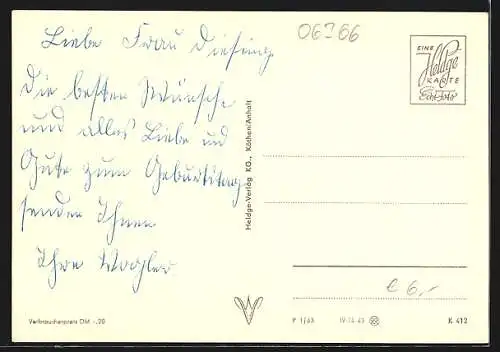 Liebe Frau Diesing
Die besten Wünsche
und alles Liebe und
Gute zum Geburtstag
senden Ihnen
Ihre Wagler
06366
EINE
Heldge
KARTE
Echt Foto
Heldge-Verlag KG., Köthen/Anhalt
€ 6,-
Verbraucherpreis DM -,20
P 1/63 IV-14-45 K 412